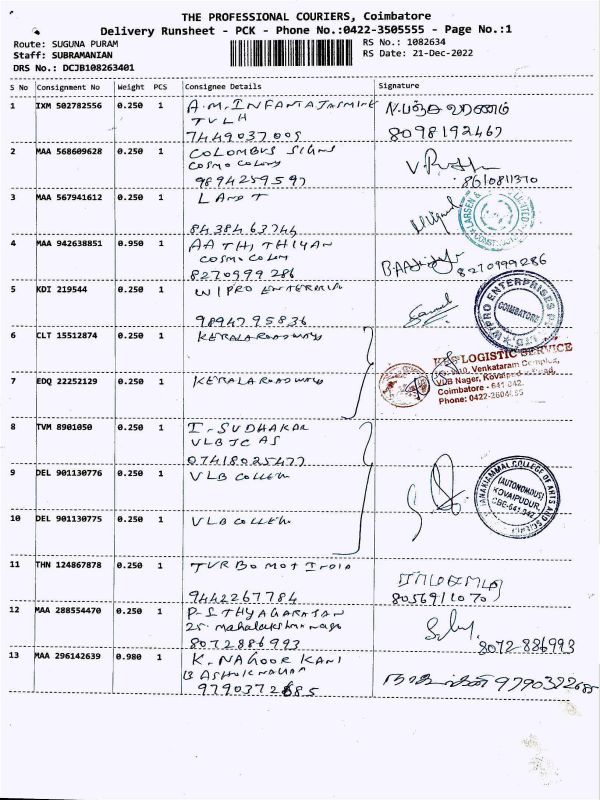 THE PROFESSIONAL COURIERS, Coimbatore
Delivery Runsheet - PCK - Phone No.:0422-3505555 - Page No.:1
Route: SUGUNA PURAM
RS No.: 1082634
Staff: SUBRAMANIAN
RS Date: 21-Dec-2022
DRS No.: DCJB108263401
S No Consignment No Weight PCS Consignee Details Signature
1 IXM 502782556 0.250 1 A.M. INFANTA JASMINE
TVLH
7449037009
N.பஞ்சவர்ணம்
8098192467
2 MAA 568609628 0.250 1 COLOMBUS SIGNS
COSMO COLONY
9894259597
8610811370
3 MAA 567941612 0.250 1 L AND T
8438463744
LARSEN & LIMITED
CONSTRUCTION
4 MAA 942638851 0.950 1 AATHI THIYAN
COSMO COLONY
8270999286
8270999286
5 KDI 219544 0.250 1 WIPRO ENTERPRIS
9894795836
WIPRO ENTERPRISES P LTD.
COIMBATORE
6 CLT 15512874 0.250 1 KERALA ROADWAYS
7 EDQ 22252129 0.250 1 KERALA ROADWAYS
LOGISTIC SERVICE
Venkataram Complex,
VUB Nagar, Kovaipudur Road,
Coimbatore - 641 042.
Phone: 0422-2604
8 TVM 8901050 0.250 1 I-SUDHAKAR
VLBJCAS
07418025477
9 DEL 901130776 0.250 1 VLB COLLEGE
10 DEL 901130775 0.250 1 VLB COLLEGE
JANAKIAMMAL COLLEGE OF ARTS AND SCIENCE
(AUTONOMOUS)
KOVAIPUDUR,
CBE-641 042
11 THN 124867878 0.250 1 TURBO MOT INDIA
9442267784
8056911070
12 MAA 288554470 0.250 1 P-S THYAGARAJAN
25. mahalakshmi nagar
8072886993
8072886993
13 MAA 296142639 0.980 1 K. NAGOOR KANI
13 ASHOK NAGAR
9790372685
9790322685